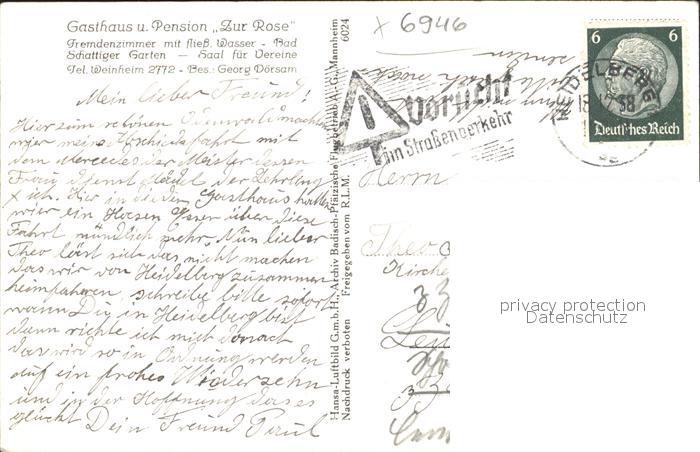 Gasthaus u. Pension „Zur Rose"
Fremdenzimmer mit fließ. Wasser - Bad
Schattiger Garten — Saal für Vereine
Tel. Weinheim 2772 - Bes.: Georg Dörsam
Mein lieber Freund!
Hier zum schönen Odenwald machten
wier meine Abschiedsfahrt mit
dem Mercedes der Meister dessen
Frau der Lehrling
x ich. Hier in die den Gasthaus hatten
wier ein Hasen Essen über diese
Fahrt mündlich mehr. Nun lieber
Theo läst sich das nicht machen
das wir von Heidelberg zusammen
heimfahren, schreibe bitte sofort
wann Du in Heidelberg bist
dann richte ich mich danach
das wird so in Ordnung werden
auf ein frohes Wiedersehn
und in der Hoffnung das es
glückt Dein Freund Paul
Hansa-Luftbild G.m.b.H., Archiv Badisch-Pfälzische Flugbetrieb A.-G., Mannheim
Nachdruck verboten Freigegeben vom R.L.M. 6024
x 6946
Vorsicht
im Straßenverkehr
HEIDELBERG
38
6 6
Deutsches Reich
Herrn
Theo
Kirche
privacy protection
Datenschutz